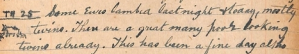 TH 25 Some Euro lambed last night & today, mostly
twins. There are a great many poor looking
twins already. This has been a fine day after